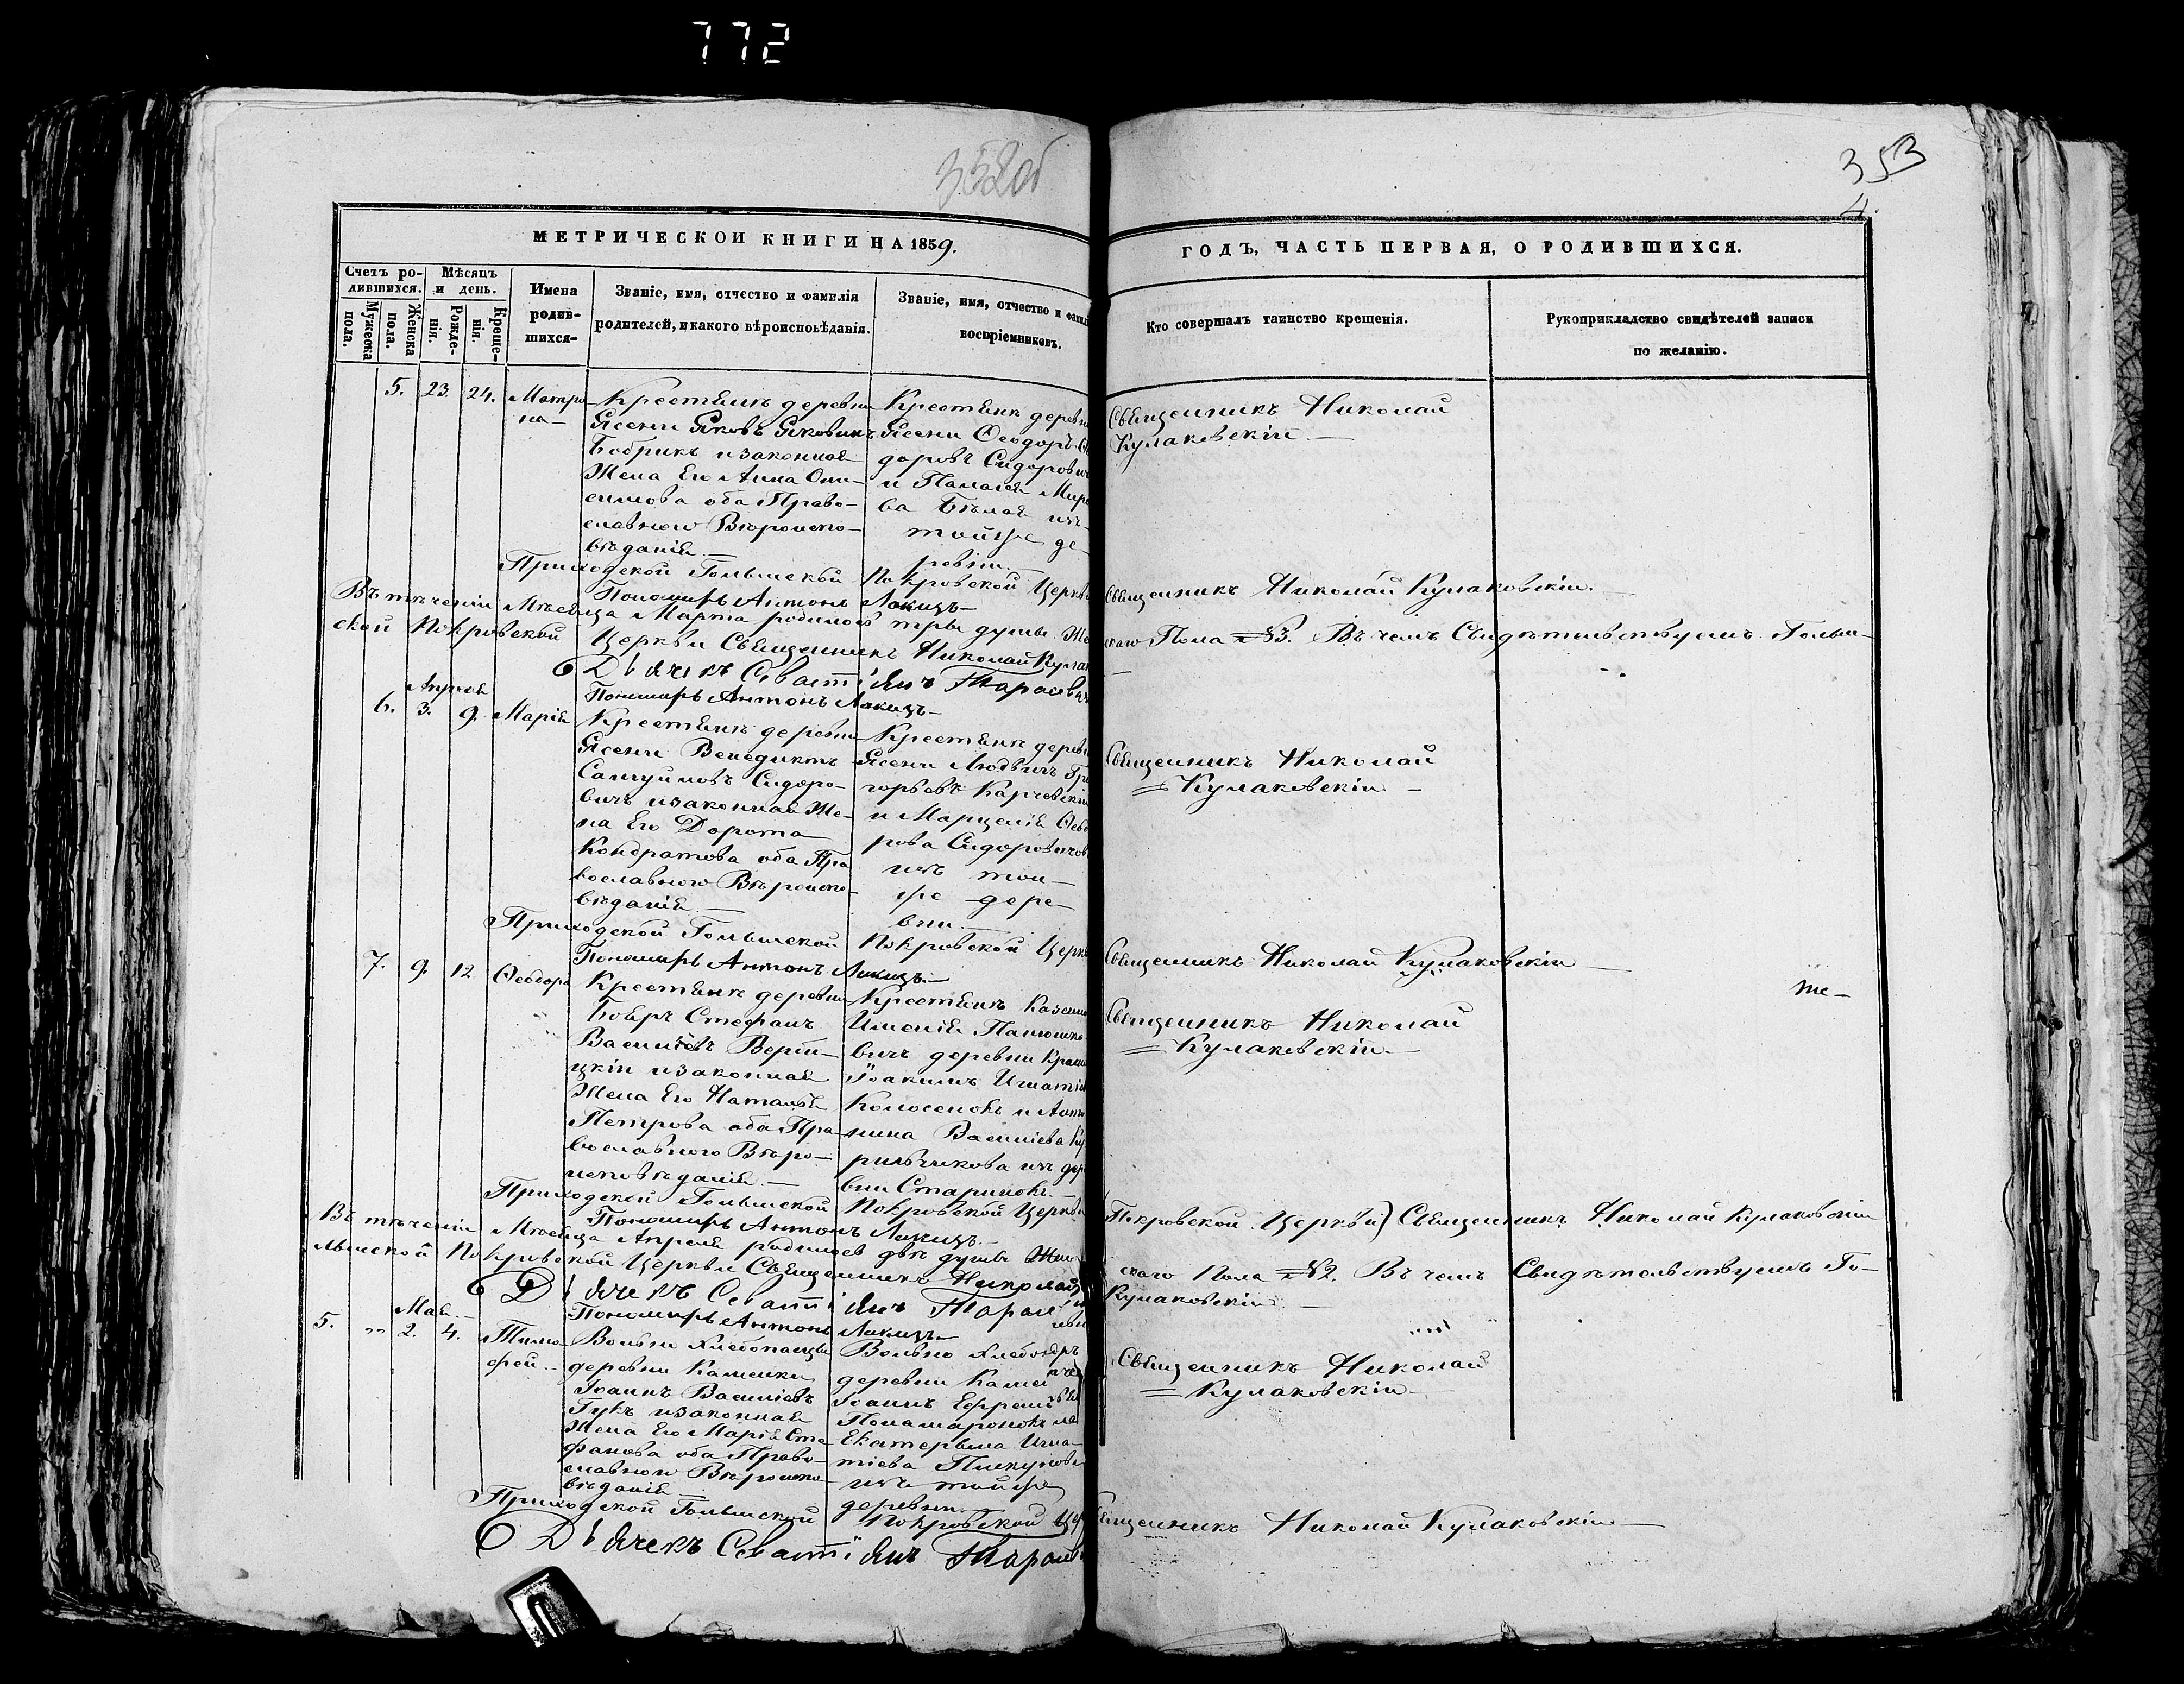 772
352об
353
4.
МЕТРИЧЕСКОИ КНИГИ НА 1859.
ГОДЪ, ЧАСТЬ ПЕРВАЯ, О РОДИВШИХСЯ.
Счетъ ро-
дившихся.
Мужеска
пола.
Женска
пола.
Мѣсяцъ
и день.
Рожде-
нія.
Креще-
нія.
Имена
родив-
шихся-
Званіе, имя, отчество и фамилія
родителей, и какого вѣроисповѣданія.
Званіе, имя, отчество и фамил
воспріемниковъ.
Кто совершалъ таинство крещенія.
Рукоприкладство свидѣтелей записи
по желанію.
5. 23. 24.
Матро-
на-
Крестьянъ деревни
Ясени Яковъ Яковлевъ
Бобрикъ и законная
Жена Его Анна Они-
симова оба Право-
славного Вѣроиспо-
вѣданія.
Крестьянъ деревни
Ясени Ѳеодоръ
доровъ Сидорович
и Паланея
ва Бѣлая изъ
тойже де-
ревни.
Священникъ Николай
Кулаковскій.
Приходской Голынской Покровской Церкви Священникъ Николай Кулаковскій.
Пономарь Антонъ Лакизъ
Въ теченіи Мѣсяца Марта родилось три души Же скаго Пола №3. Въ чемъ Свидѣтельствуемъ Голын-
ской Покровской Церкви Священникъ Николай Кулак
Дьячекъ Севастіянъ Тарасевич
Пономарь Антонъ Лакизъ
Апреля
6. 3. 9.
Марія
Крестьянъ деревни
Ясени Венедиктъ
Самуиловъ Сидоро-
вичъ и законная Же-
на Его Дорота
Кондратова оба Пра
вославного Вѣроиспо-
вѣданія.
Крестьянъ деревн
Ясени Людвигъ Гри
горьевъ Карчевскій
и Марцелія Ѳеодо
рова Сидоровичов
изъ той-
же дере-
вни.
Священникъ Николай
Кулаковскій
Приходской Голынской Покровской Церкви Священникъ Николай Кулаковскій
Пономарь Антонъ Лакизъ
7. 9. 12.
Ѳеодора
Крестьянъ деревни
Бояръ Стефанъ
Васильевъ Верби-
цкій и законная
Жена Его Наталія
Петрова оба Пра-
вославного Вѣро-
исповѣданія.
Крестьянъ Казенна
Именія Панюшко-
вичъ деревни
Іоакимъ Игнатіев
Колосенокъ и Анто
нина Васильева
рильчикова изъ дер
вни Старинокъ.
те-
Священникъ Николай
Кулаковскій
Приходской Голынской Покровской Церкви (Покровской Церкви) Священникъ Николай Кулаковскій
Пономарь Антонъ Лакизъ.
Въ теченіи Мѣсяца Апреля родилось двѣ души Жен скаго Пола №2. Въ чемъ Свидѣтельствуемъ Го-
лынской Покровской Церкви Священникъ Николай Кулаковскій
Дьячекъ Севастіянъ Тарасевич
Пономарь Антонъ Лакизъ
Мая
5. „ 2. 4.
Тимо-
фей.
Вольни Хлебопашцы
деревни Каменки
Іоаннъ Васильевъ
Гукъ и законная
Жена Его Марія Сте-
фанова оба Право-
славного Вѣроиспо-
вѣданія
Вольно Хлебопашецъ
деревни Камен
Іоаннъ Ефремовъ
Понамаронокъ
Екатерына Игна-
тіева Пикулова
изъ тойже
деревни.
Священникъ Николай
Кулаковскій
Приходской Голынской Покровской Церк Священникъ Николай Кулаковскій
Дьячекъ Севастіянъ Тарасеви